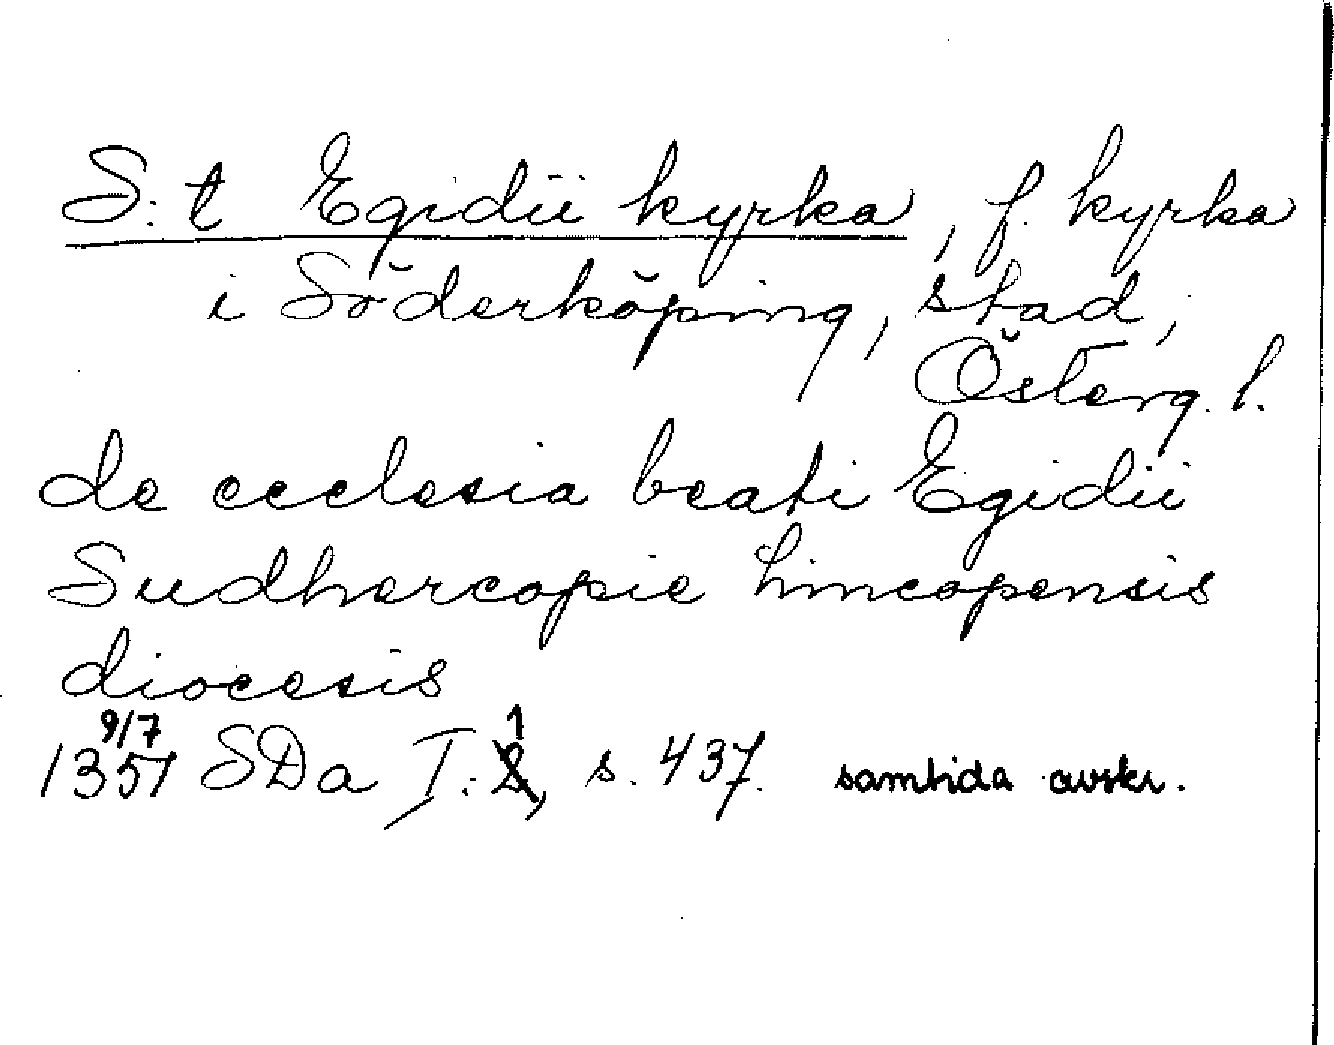 S:t Egidii kyrka, f. kyrka
i Söderköping, stad,
Österg. l.
de ecclesia beati Egidii
Sudhercopie Lincopensis
diocesis
9/7
1351 SDa I:1, s. 437. samtida avskr.